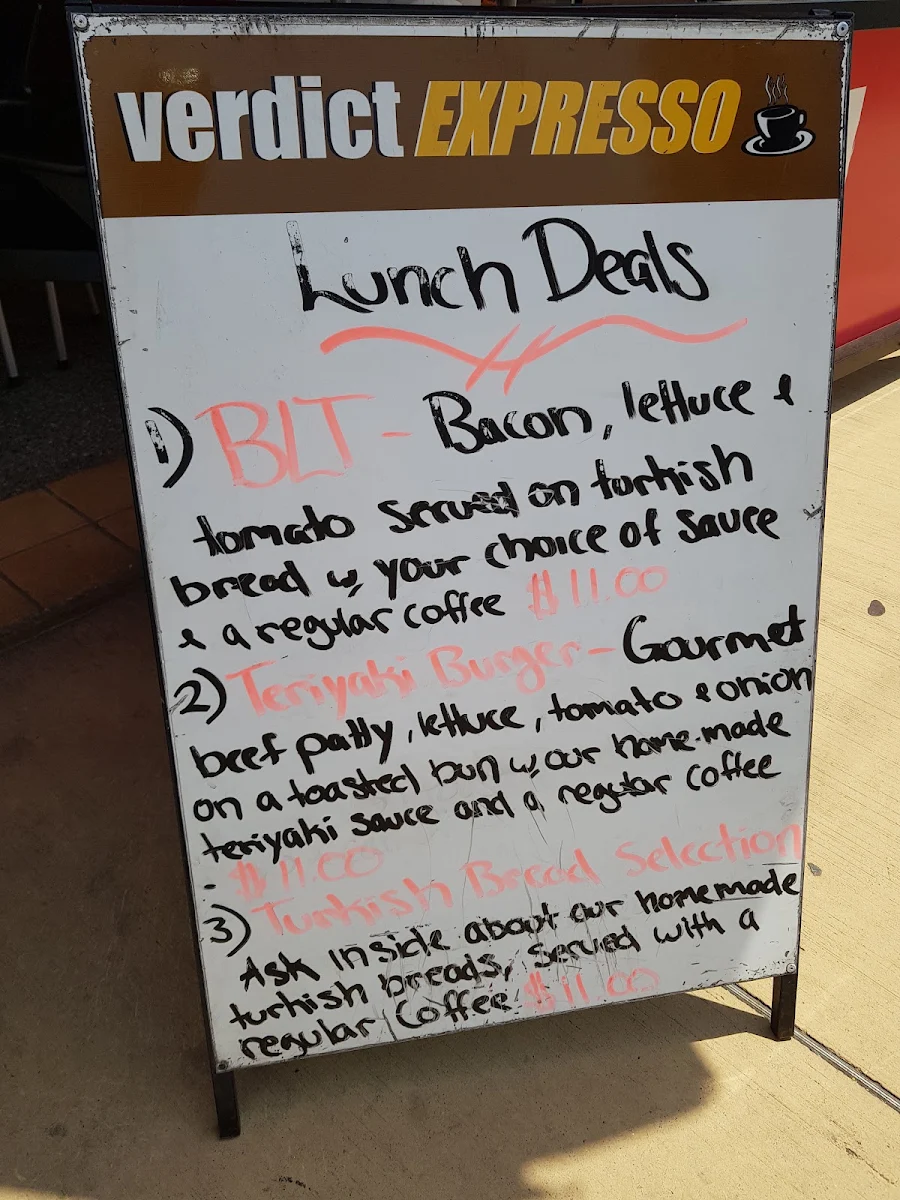 verdict EXPRESSO
Lunch Deals
1) BLT - Bacon, lettuce &
tomato served on turkish
bread w, your choice of sauce
& a regular coffee $11.00
2) Teriyaki Burger - Gourmet
beef patty, lettuce, tomato & onion
on a toasted bun w, our home-made
teriyaki sauce and a regular coffee
- $11.00
3) Turkish Bread Selection
Ask inside about our homemade
turkish breads, served with a
regular coffee $11.00